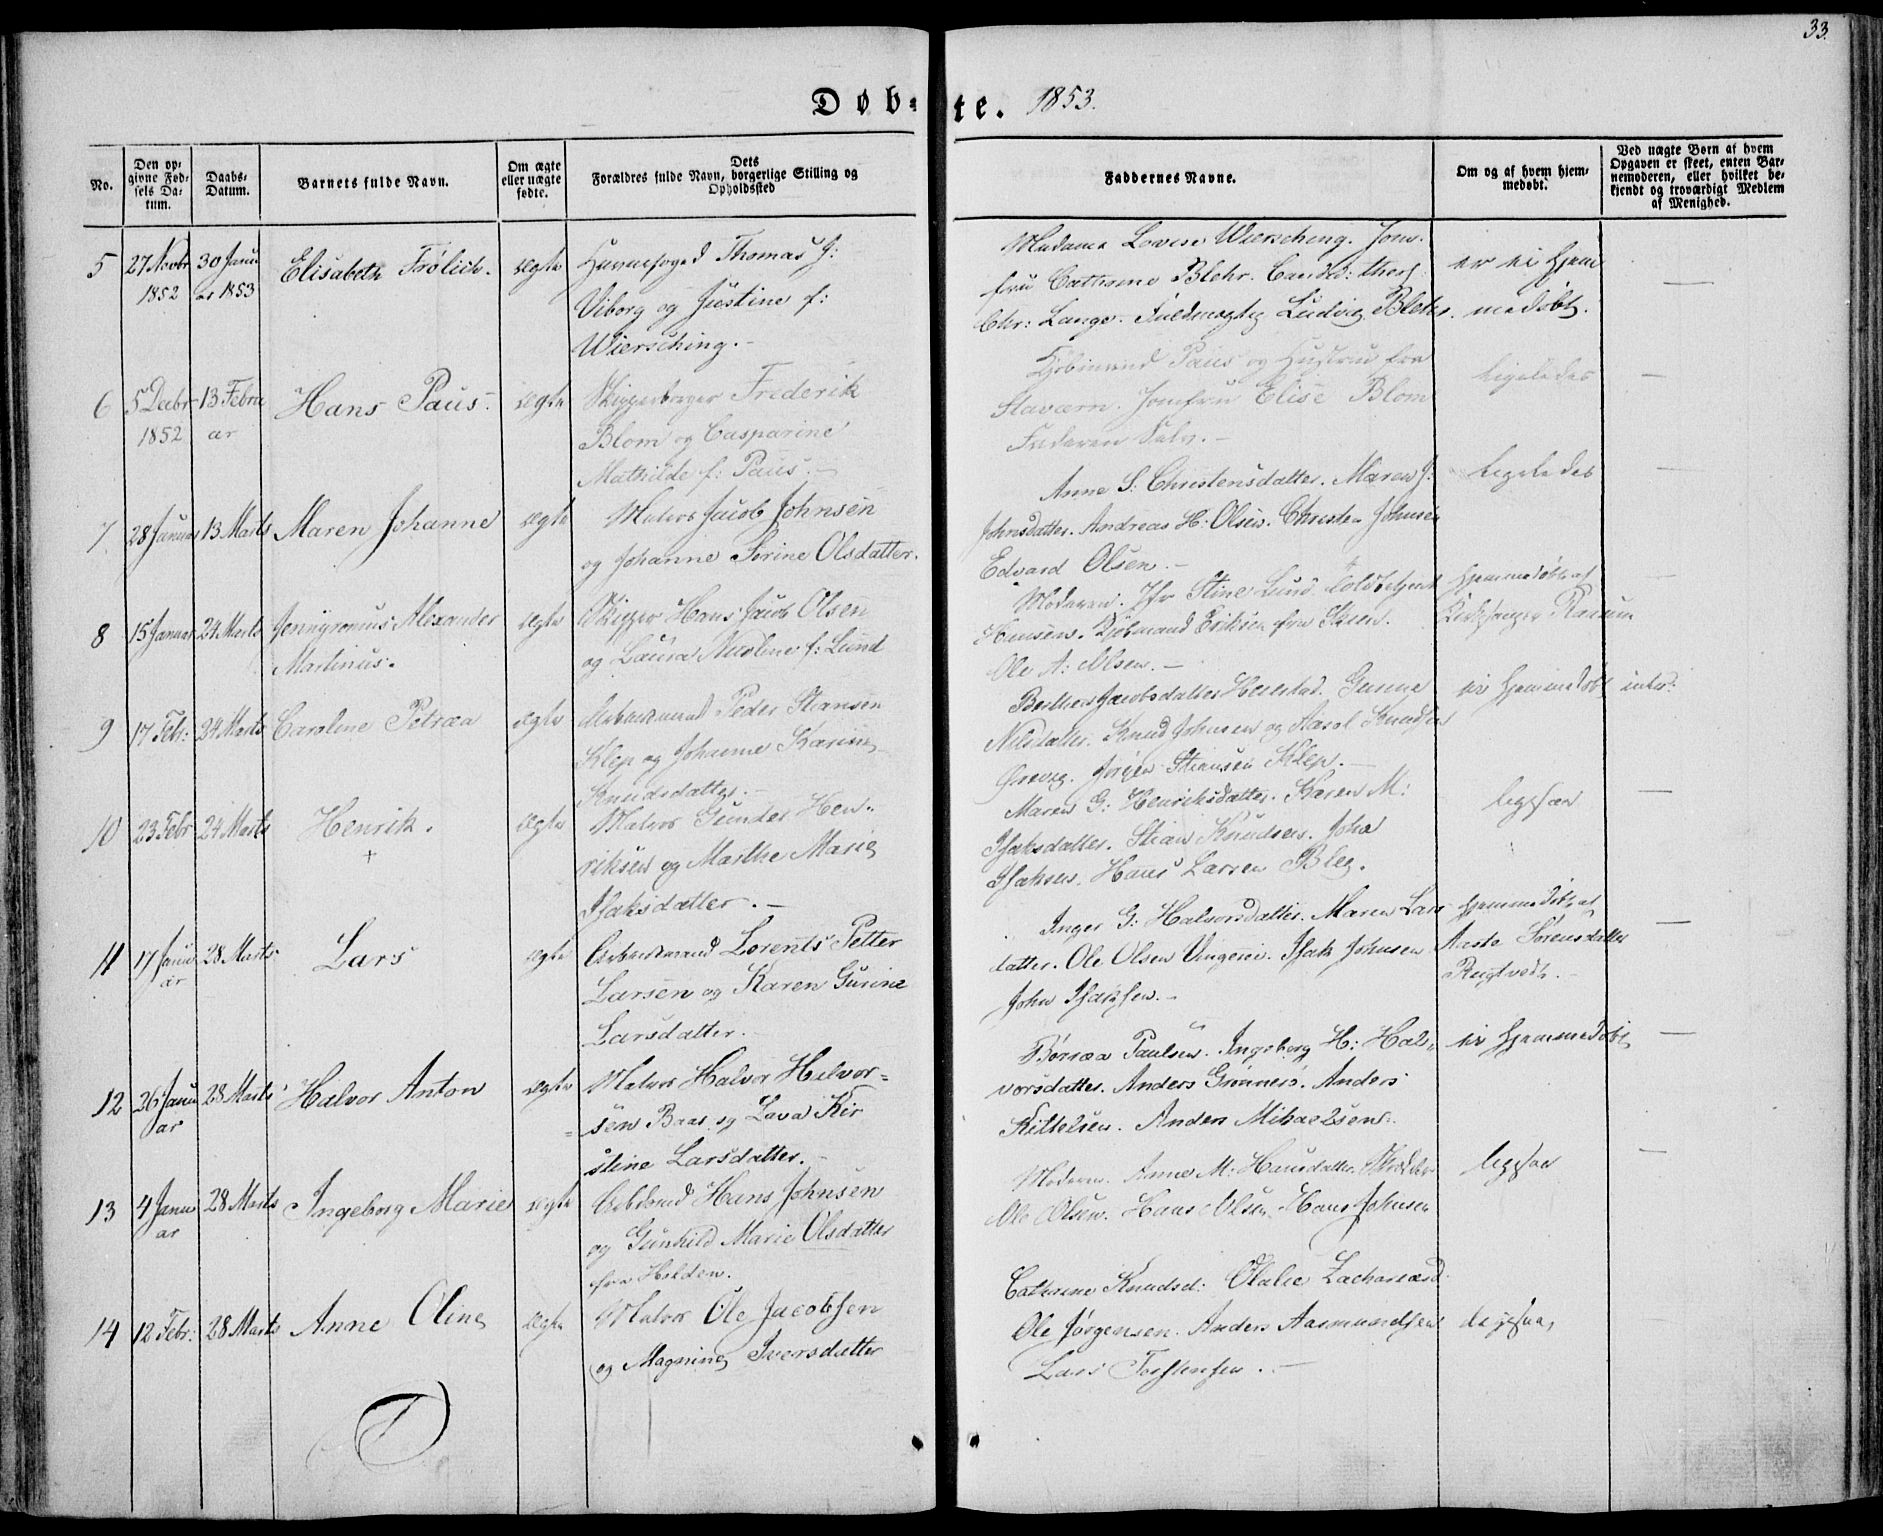 33.
Døb=te. 1853.
No.
Den op=
givne Fød=
sels Da=
tum.
Daabs=
Datum.
Barnets fulde Navn.
Om ægte
eller uægte
fødte.
Dets
Forældres fulde Navn, borgerlige Stilling og
Opholdssted
Faddernes Navne.
Om og af hvem hjem=
medøbt.
Ved uægte Børn af hvem
Opgaven er skeet, enten Bar=
nemoderen, eller hvilket be=
kjendt og troværdigt Medlem
af Menighed.
5
27 Novbr
1852
30 Janu
ar 1853
Elisabeth Frölich.
ægte
Thomas J:
Viborg og Justine f:
Wiersching.
Madame Lovise Wiersching. Jom.
fru Cathrine Blehr. Candid: theol:
Chr: Lange. Fuldmægtig Ludvig Blehr.
er ei hjem
medøbt.
6
5 Decbr
1852
13 Febru
ar
Hans Paus.
ægte
Skipperborger Frederik
Blom og Casparine
Mathilde f: Paus.
Kjøbmand Paus og Hustru fra
Staværn. Jomfru Elise Blom
Faderen Selv.
ligeledes
7.
28 Januar
13 Marts
Maren Johanne
ægte
Matros Jacob Johnsen
og Johanne Sørine Olsdatter.
Anne S: Christensdatter. Maren J:
Johnsdatter. Andreas H. Olsen. Christen Johnsen
Edvard Olsen.
ligeledes
8
15 Januar
24 Marts
Alexander
Martinus.
ægte
Skipper Hans Jacob Olsen
og Laura Nicoline f: Lund
Moderen. Jfr Stine Lund. Toldbetjent
Hansen. Kjøbmand Eriksen fra Skien.
Ole A: Olsen.
hjemmedøbt af
Kirkesanger
9
17 Febr:
24 Marts
Caroline Petræa
ægte
Arbeidsmand Peder Stiansen
Klep og Johanne Karine
Knudsdatter.
Berthe Jacobsdatter Gunne
Nilsdatter. Knud Johnsen og Aasol Knudsen
Jørgen Stiansen Klep.
ei hjemmedøbt
10
23 Febr
24 Marts
Henrik.
+
ægte
Matros Gunder Hen=
riksen og Marthe Marie
Isaksdatter.
Maren G: Henriksdatter. Karen M:
Isaksdatter. Stian Knudsen. John
Isaksen. Hans Larsen Bleg.
ligesaa
11
17 Janu
ar
28 Marts
Lars
ægte
Arbeidsmand Lorents Petter
Larsen og Karen Gurine
Larsdatter.
Inger G: Halvorsdatter. Maren Lars
datter. Ole Olsen Isak Johnsen
John Isaksen.
hjemmedøbt af
Aaste Sørensdatter
Rugtvedt.
12
26 Janu
ar
28 Marts
Halvor Anton
ægte
Matros Halvor Halvor=
sen Baas og Lava Kir
stine Larsdatter.
Paulsen. Ingeborg H: Hal=
vorsdatter. Anders Anders
Kittelsen. Anders Mikaelsen.
ei hjemmedøbt
13
4 Janu
ar
28 Marts
Ingeborg Marie
ægte
Hans Johnsen
og Gunhild Marie Olsdatter
fra Holden.
Moderen. Anne M. Hansdatter.
Ole Olsen. Hans Olsen. Hans Johnsen
ligesaa
14
12 Febr:
28 Marts
Anne Oline
ægte
Matros Ole Jacobsen
og Magnine Iversdatter
Cathrine Knudsd: Olalie Zachariasd.
Ole Jørgensen. Anders Aasmundsen
Lars Torstensen.
ligesaa